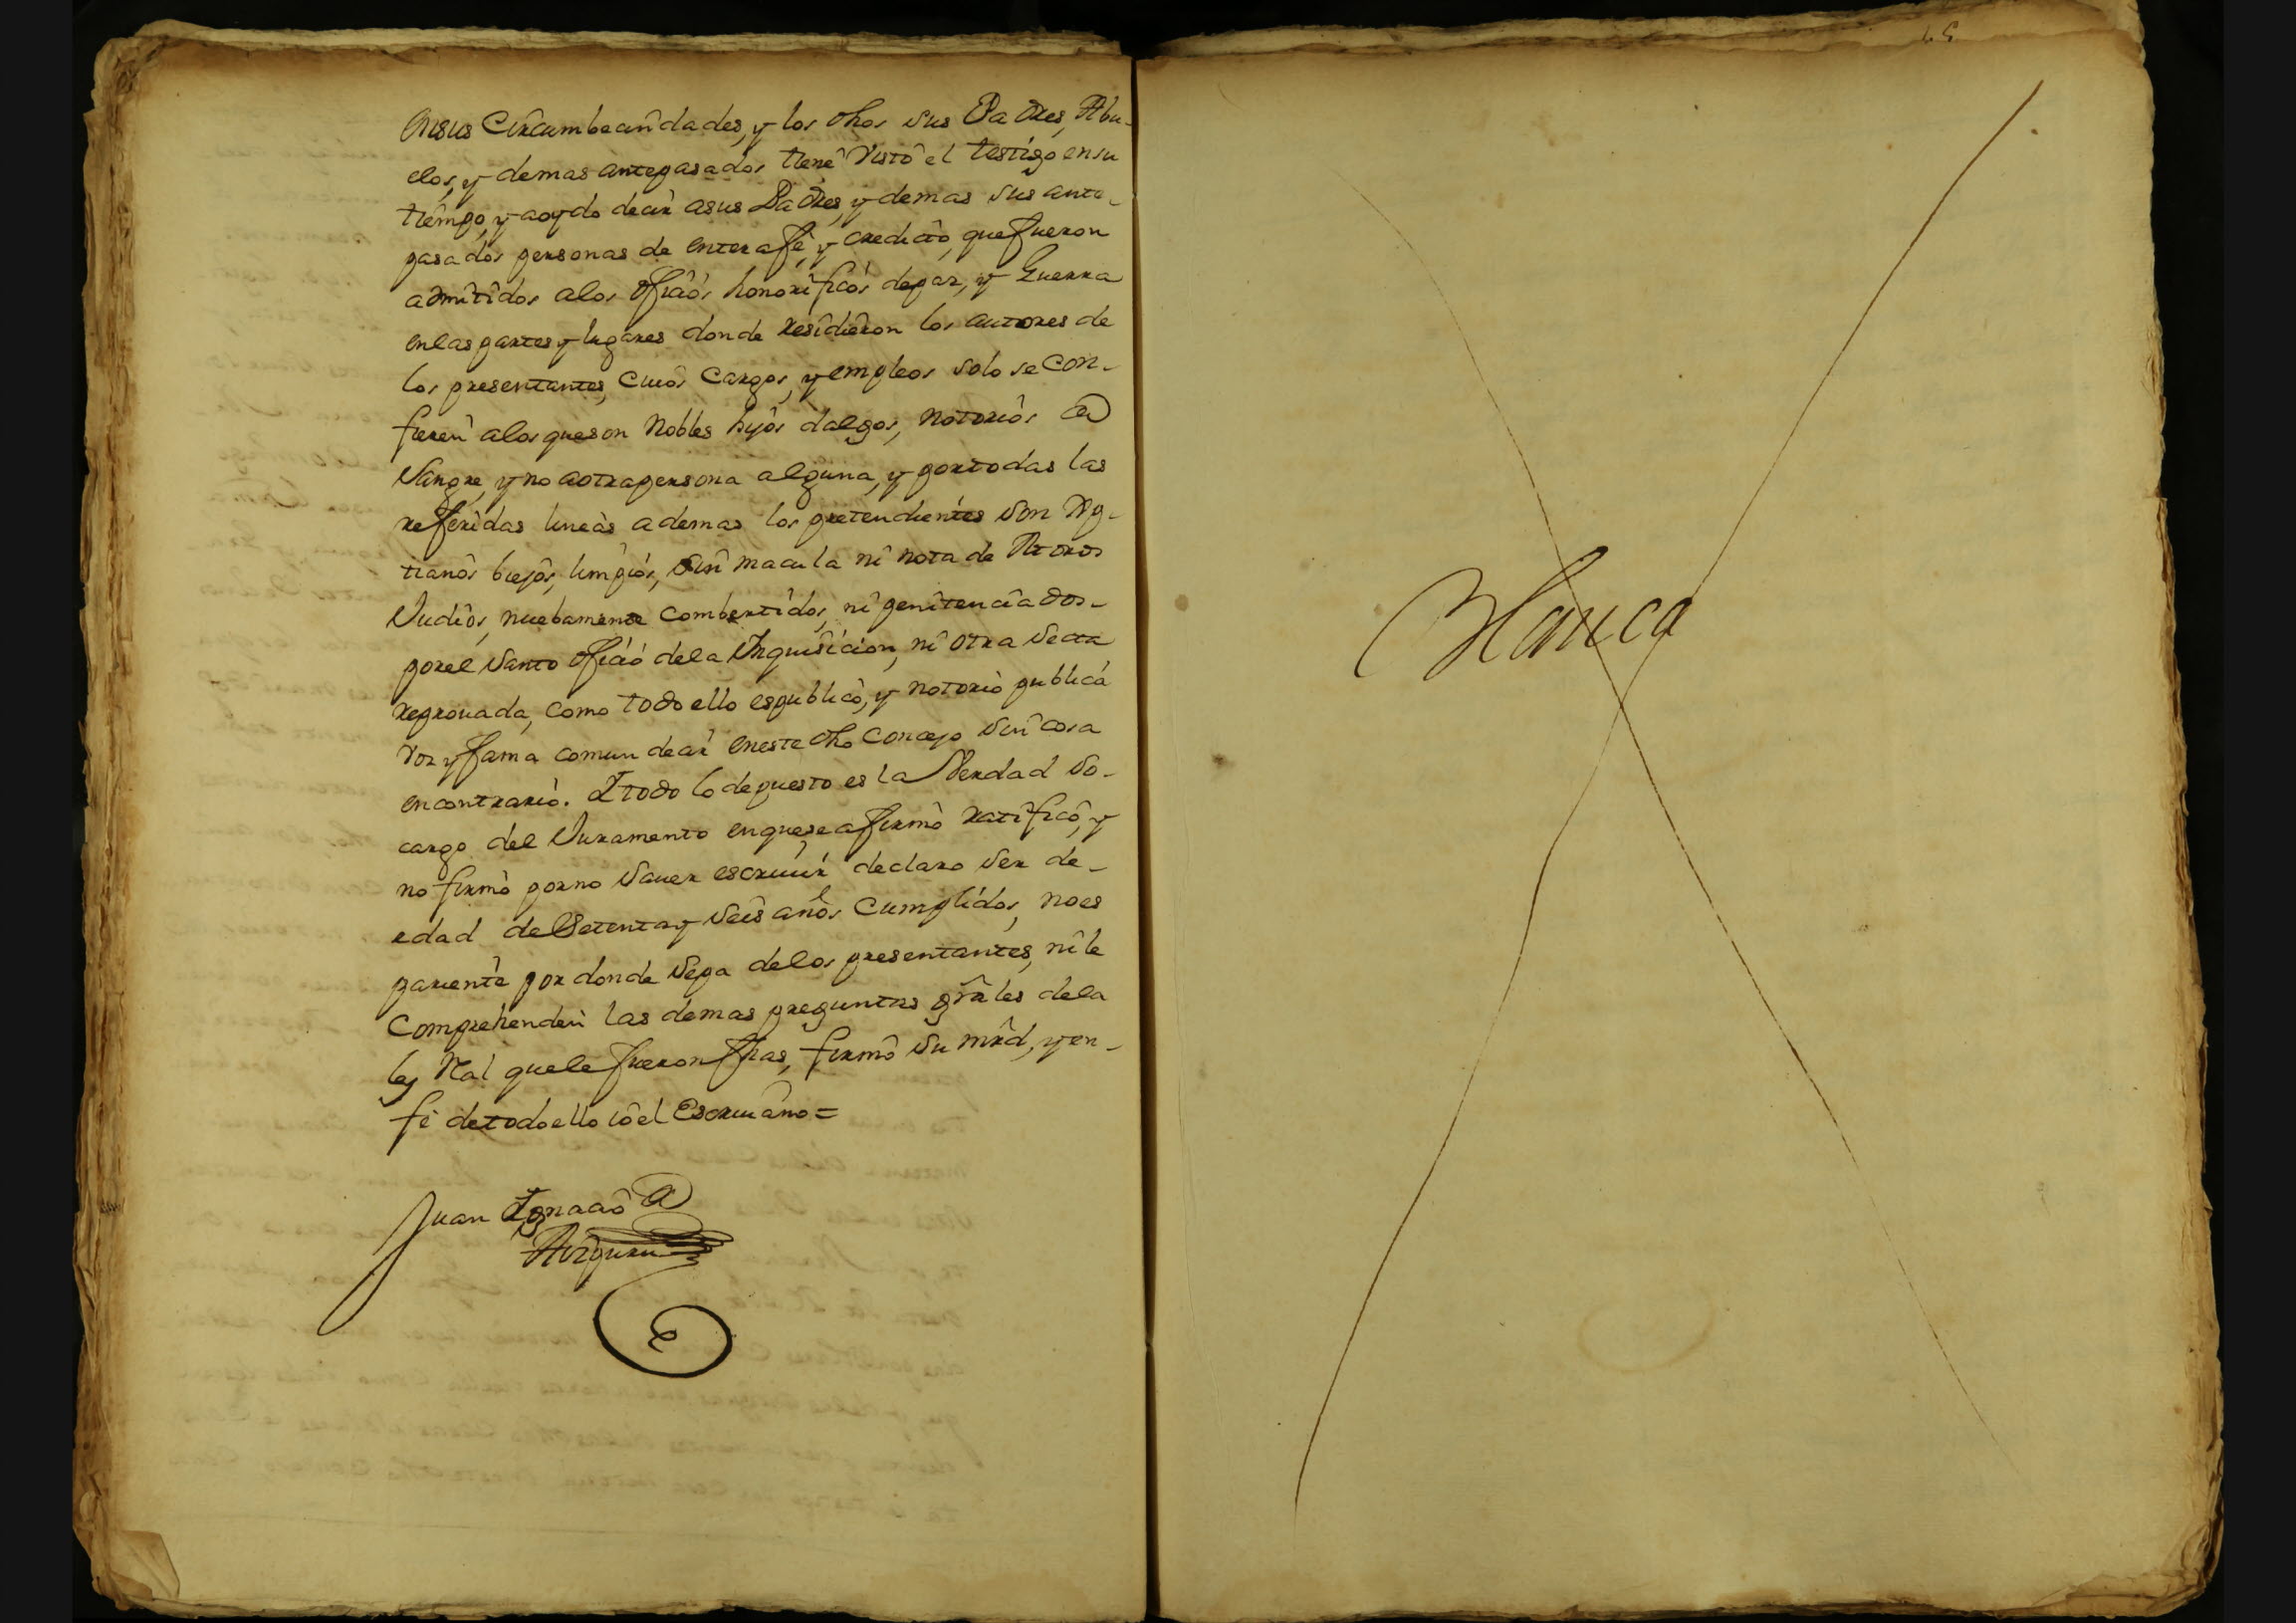 Ensus Circumbecindades, y los dhos sus Padres, Abu-
elos, y demas antepasados tiene visto el testigo ensu
tiempo, y aoydo decir asus Padres, y demas sus ante-
pasados personas de entera fe, y credicto, que fueron
admitidos alos ofiçios honorificos depaz, y Guerra
enlas partes y lugares donde residieron los autores de
los presentantes, cuios cargos, y empleos solo se con-
fieren alos queson Nobles hijos dalgos, notorios de
sangre, y no aotrapersona alguna, y portodas las
referidas lineas ademas los pretendientes son Xp-
tianos biejos, limpios, sin macula ni nota de Moros
Judios, nuebamente combertidos, ni penitenciados-
porel Santo ofiçio dela Inquisicion, ni otra secta
reprouada, como todo ello espublico, y notorio publica
voz y fama comun decir eneste dho Concejo sin cosa
encontrario. I todo lo depuesto es la Verdad so-
cargo del Juramento enquese afirmò ratificò, y
no firmò porno sauer escriuir declaro ser de-
edad de Setenta y seis años Cumplidos, noes
pariente por donde sepa delos presentantes, nile
Comprehenden las demas preguntas grales dela
ley Ral quele fueron fhas, firmò su mrd, y en-
fe detodoello io el Escriuano =
Juan Ignacio de
Aizpuru
Blanca